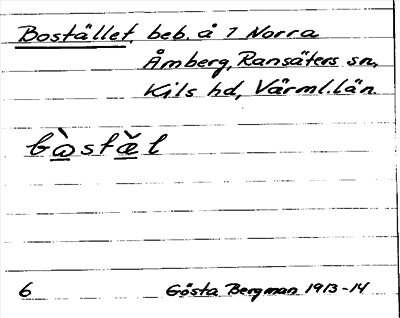 Bostället, beb. å 1 Norra
Åmberg, Ransäters sn,
Kils hd, Värml. län
6 Gösta Bergman 1913-14